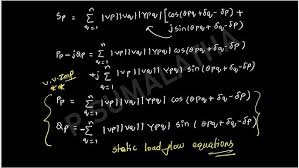 Sp = Σ(q=1 to n) |Vp||Vq||Ypq| [cos(θpq + δq - δp) +
j sin(θpq + δq - δp)]
Pp - jQp = Σ(q=1 to n) |Vp||Vq||Ypq| cos(θpq + δq - δp)
+j Σ(q=1 to n) |Vp||Vq||Ypq| sin(θpq + δq - δp)
V.V.Imp
**
Pp = Σ(q=1 to n) |Vp||Vq||Ypq| cos(θpq + δq - δp)
Qp = -Σ(q=1 to n) |Vp||Vq||Ypq| sin(θpq + δq - δp)
static load flow equations